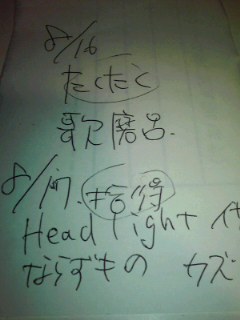 8/16
たくたく
歌磨呂.
8/17. 拾得
Head light 代
ならずもの カズ